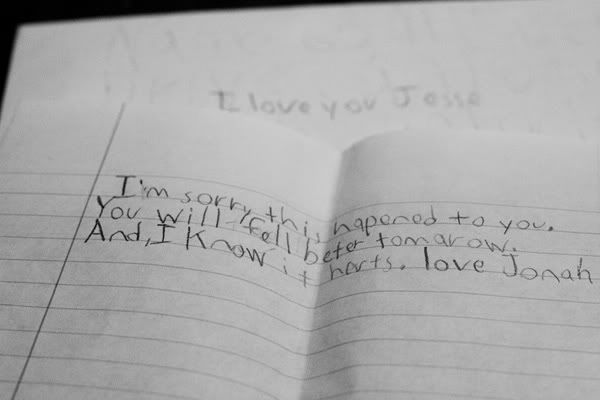 I love you Jesse
I'm sorry, this hapened to you.
You will fell beter tomarow.
And, I Know it harts. love Jonah